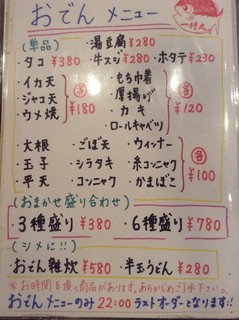 おでん メニュー
(単品)
・湯豆腐 ¥280
・タコ ¥380 ・牛スジ ¥280 ・ホタテ ¥230
・イカ天
・ジャコ天
・ウメ焼
各 ¥180
・もち巾着
・厚揚げ
・カキ
・ロールキャベツ
各 ¥120
・大根 ・ごぼ天 ・ウィンナー
・玉子 ・シラタキ ・糸コンニャク
・平天 ・コンニャク ・かまぼこ
各 ¥100
(おまかせ盛り合わせ)
・3種盛り ¥380 ・6種盛り ¥780
(シメに!!)
おでん雑炊 ¥580 ・半玉うどん ¥280
※お時間を頂く商品があります。あらかじめご了承下さい。
おでんメニューのみ 22:00 ラストオーダーとなります!!